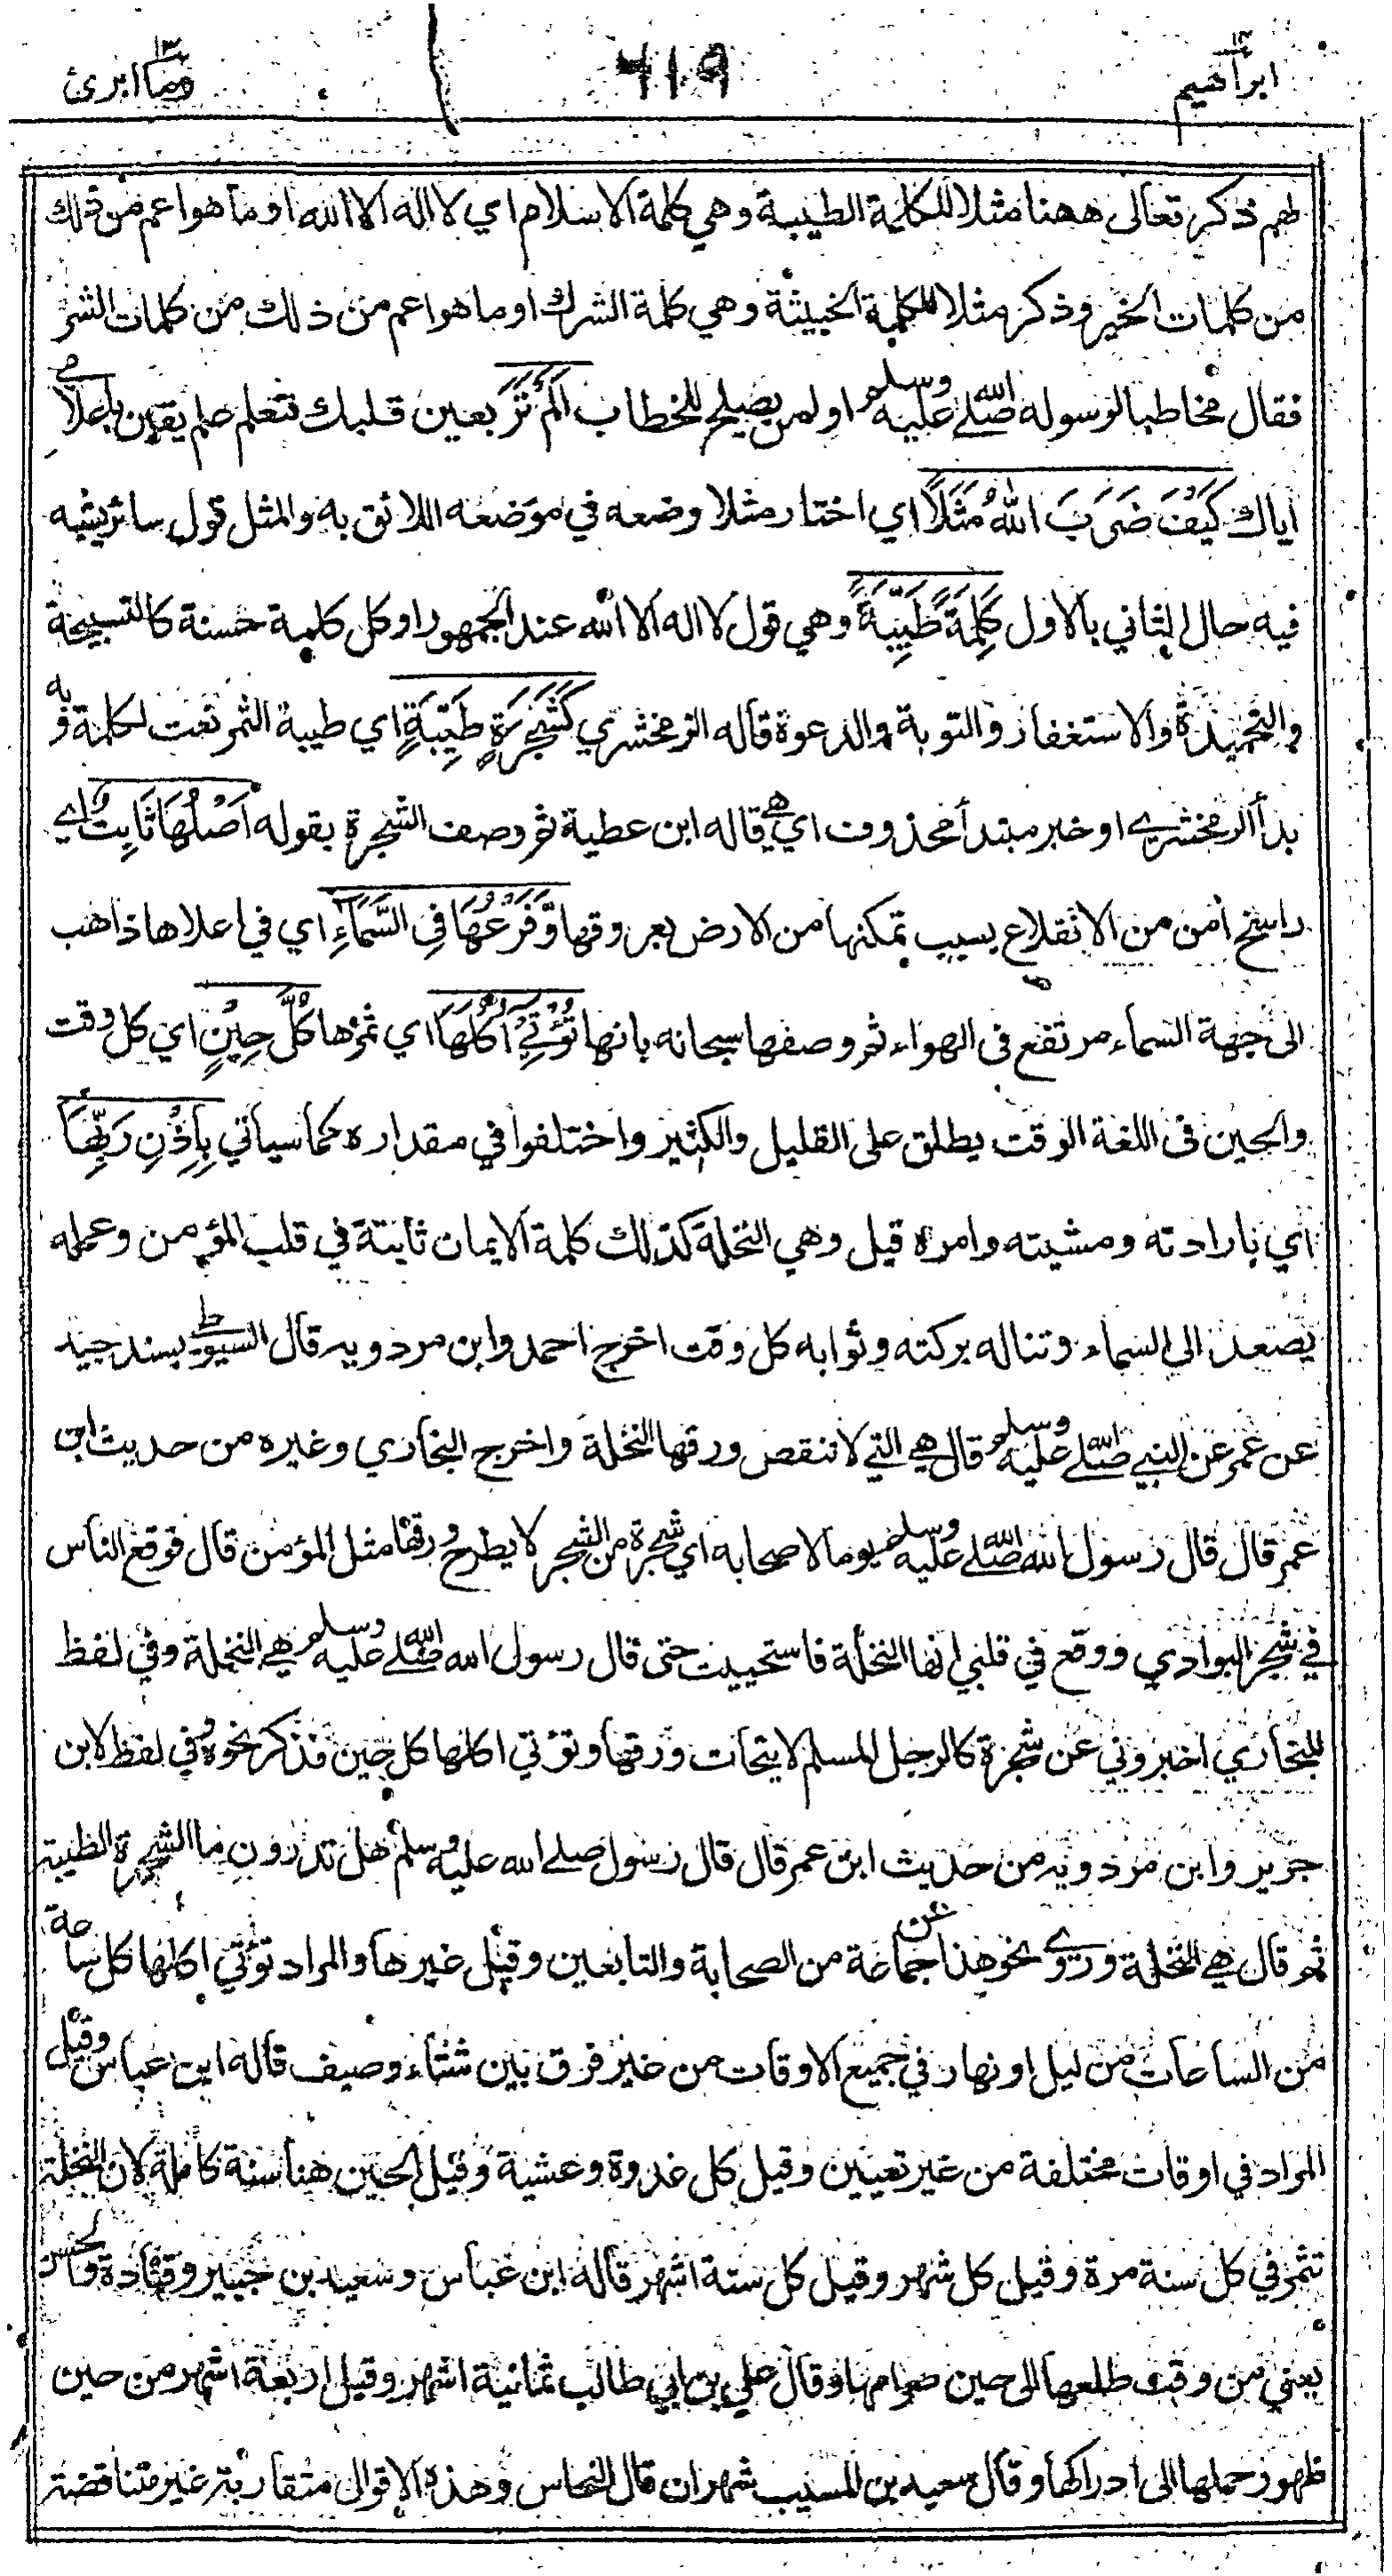 ابراهيم ١٤
٦١٩
وما ابرئ ١٣
لهم ذكر تعالى ههنا مثلا للكلمة الطيبة وهي كلمة الاسلام اي لا اله الا الله او ما هو اعم من ذلك
من كلمات الخير وذكر مثلا للكلمة الخبيثة وهي كلمة الشرك او ما هو اعم من ذلك من كلمات الشر
فقال مخاطبا لرسوله صلى الله عليه وسلم او لمن يصلح للخطاب اَلَمْ تَرَ بعين قلبك فتعلم علم يقين باعلامي
اياك كَيْفَ ضَرَبَ اللهُ مَثَلًا اي اختار مثلا وضعه في موضعه اللائق به والمثل قول سائر يشبه
فيه حال الثاني بالاول كَلِمَةً طَيِّبَةً وهي قول لا اله الا الله عند الجمهور او كل كلمة حسنة كالتسبيحة
والتحميدة والاستغفار والتوبة والدعوة قاله الزمخشري كَشَجَرَةٍ طَيِّبَةٍ اي طيبة الثمر نعت لكلمة وبه
بدأ الزمخشري او خبر مبتدأ محذوف اي هي قاله ابن عطية ثم وصف الشجرة بقوله اَصْلُهَا ثَابِتٌ اي
راسخ امن من الانقلاع بسبب تمكنها من الارض بعروقها وَّفَرْعُهَا فِي السَّمَاءِ اي في اعلاها ذاهب
الى جهة السماء مرتفع فى الهواء ثم وصفها سبحانه بانها تُؤْتِيْ اُكُلَهَا اي ثمرها كُلَّ حِيْنٍ اي كل وقت
والحين فى اللغة الوقت يطلق على القليل والكثير واختلفوا في مقداره كما سيأتي بِاِذْنِ رَبِّهَا
اي بارادته ومشيته وامره قيل وهي النخلة كذلك كلمة الايمان ثابتة في قلب المؤمن وعمله
يصعد الى السماء وتناله بركته وثوابه كل وقت اخرج احمد وابن مردويه قال السيوطي بسند جيد
عن عمر عن النبي صلى الله عليه وسلم قال هي التي لا تنقص ورقها النخلة واخرج البخاري وغيره من حديث ابن
عمر قال قال رسول الله صلى الله عليه وسلم يوما لاصحابه اي شجرة من الشجر لا يطرح ورقها مثل المؤمن قال فوقع الناس
في شجر البوادي ووقع في قلبي انها النخلة فاستحييت حتى قال رسول الله صلى الله عليه وسلم هي النخلة وفي لفظ
للبخاري اخبروني عن شجرة كالرجل المسلم لا يتحات ورقها وتؤتي اكلها كل حين فذكر نحوه وفي لفظ لابن
جرير وابن مردويه من حديث ابن عمر قال قال رسول صلى الله عليه وسلم هل تدرون ما الشجرة الطيبة
ثم قال هي النخلة وروي نحو هذا عن جماعة من الصحابة والتابعين وقيل غيرها والمراد تؤتي اكلها كل ساعة
من الساعات من ليل او نهار في جميع الاوقات من غير فرق بين شتاء وصيف قاله ابن عباس وقيل
المراد في اوقات مختلفة من غير تعيين وقيل كل غدوة وعشية وقيل الحين هنا سنة كاملة لان النخلة
تثمر في كل سنة مرة وقيل كل شهر وقيل كل ستة اشهر قاله ابن عباس وسعيد بن جبير وقتادة والحسن
يعني من وقت طلعها الى حين صرامها وقال علي بن ابي طالب ثمانية اشهر وقيل اربعة اشهر من حين
ظهور حملها الى ادراكها وقال سعيد بن المسيب شهران قال النحاس وهذه الاقوال متقاربة غير متناقضة